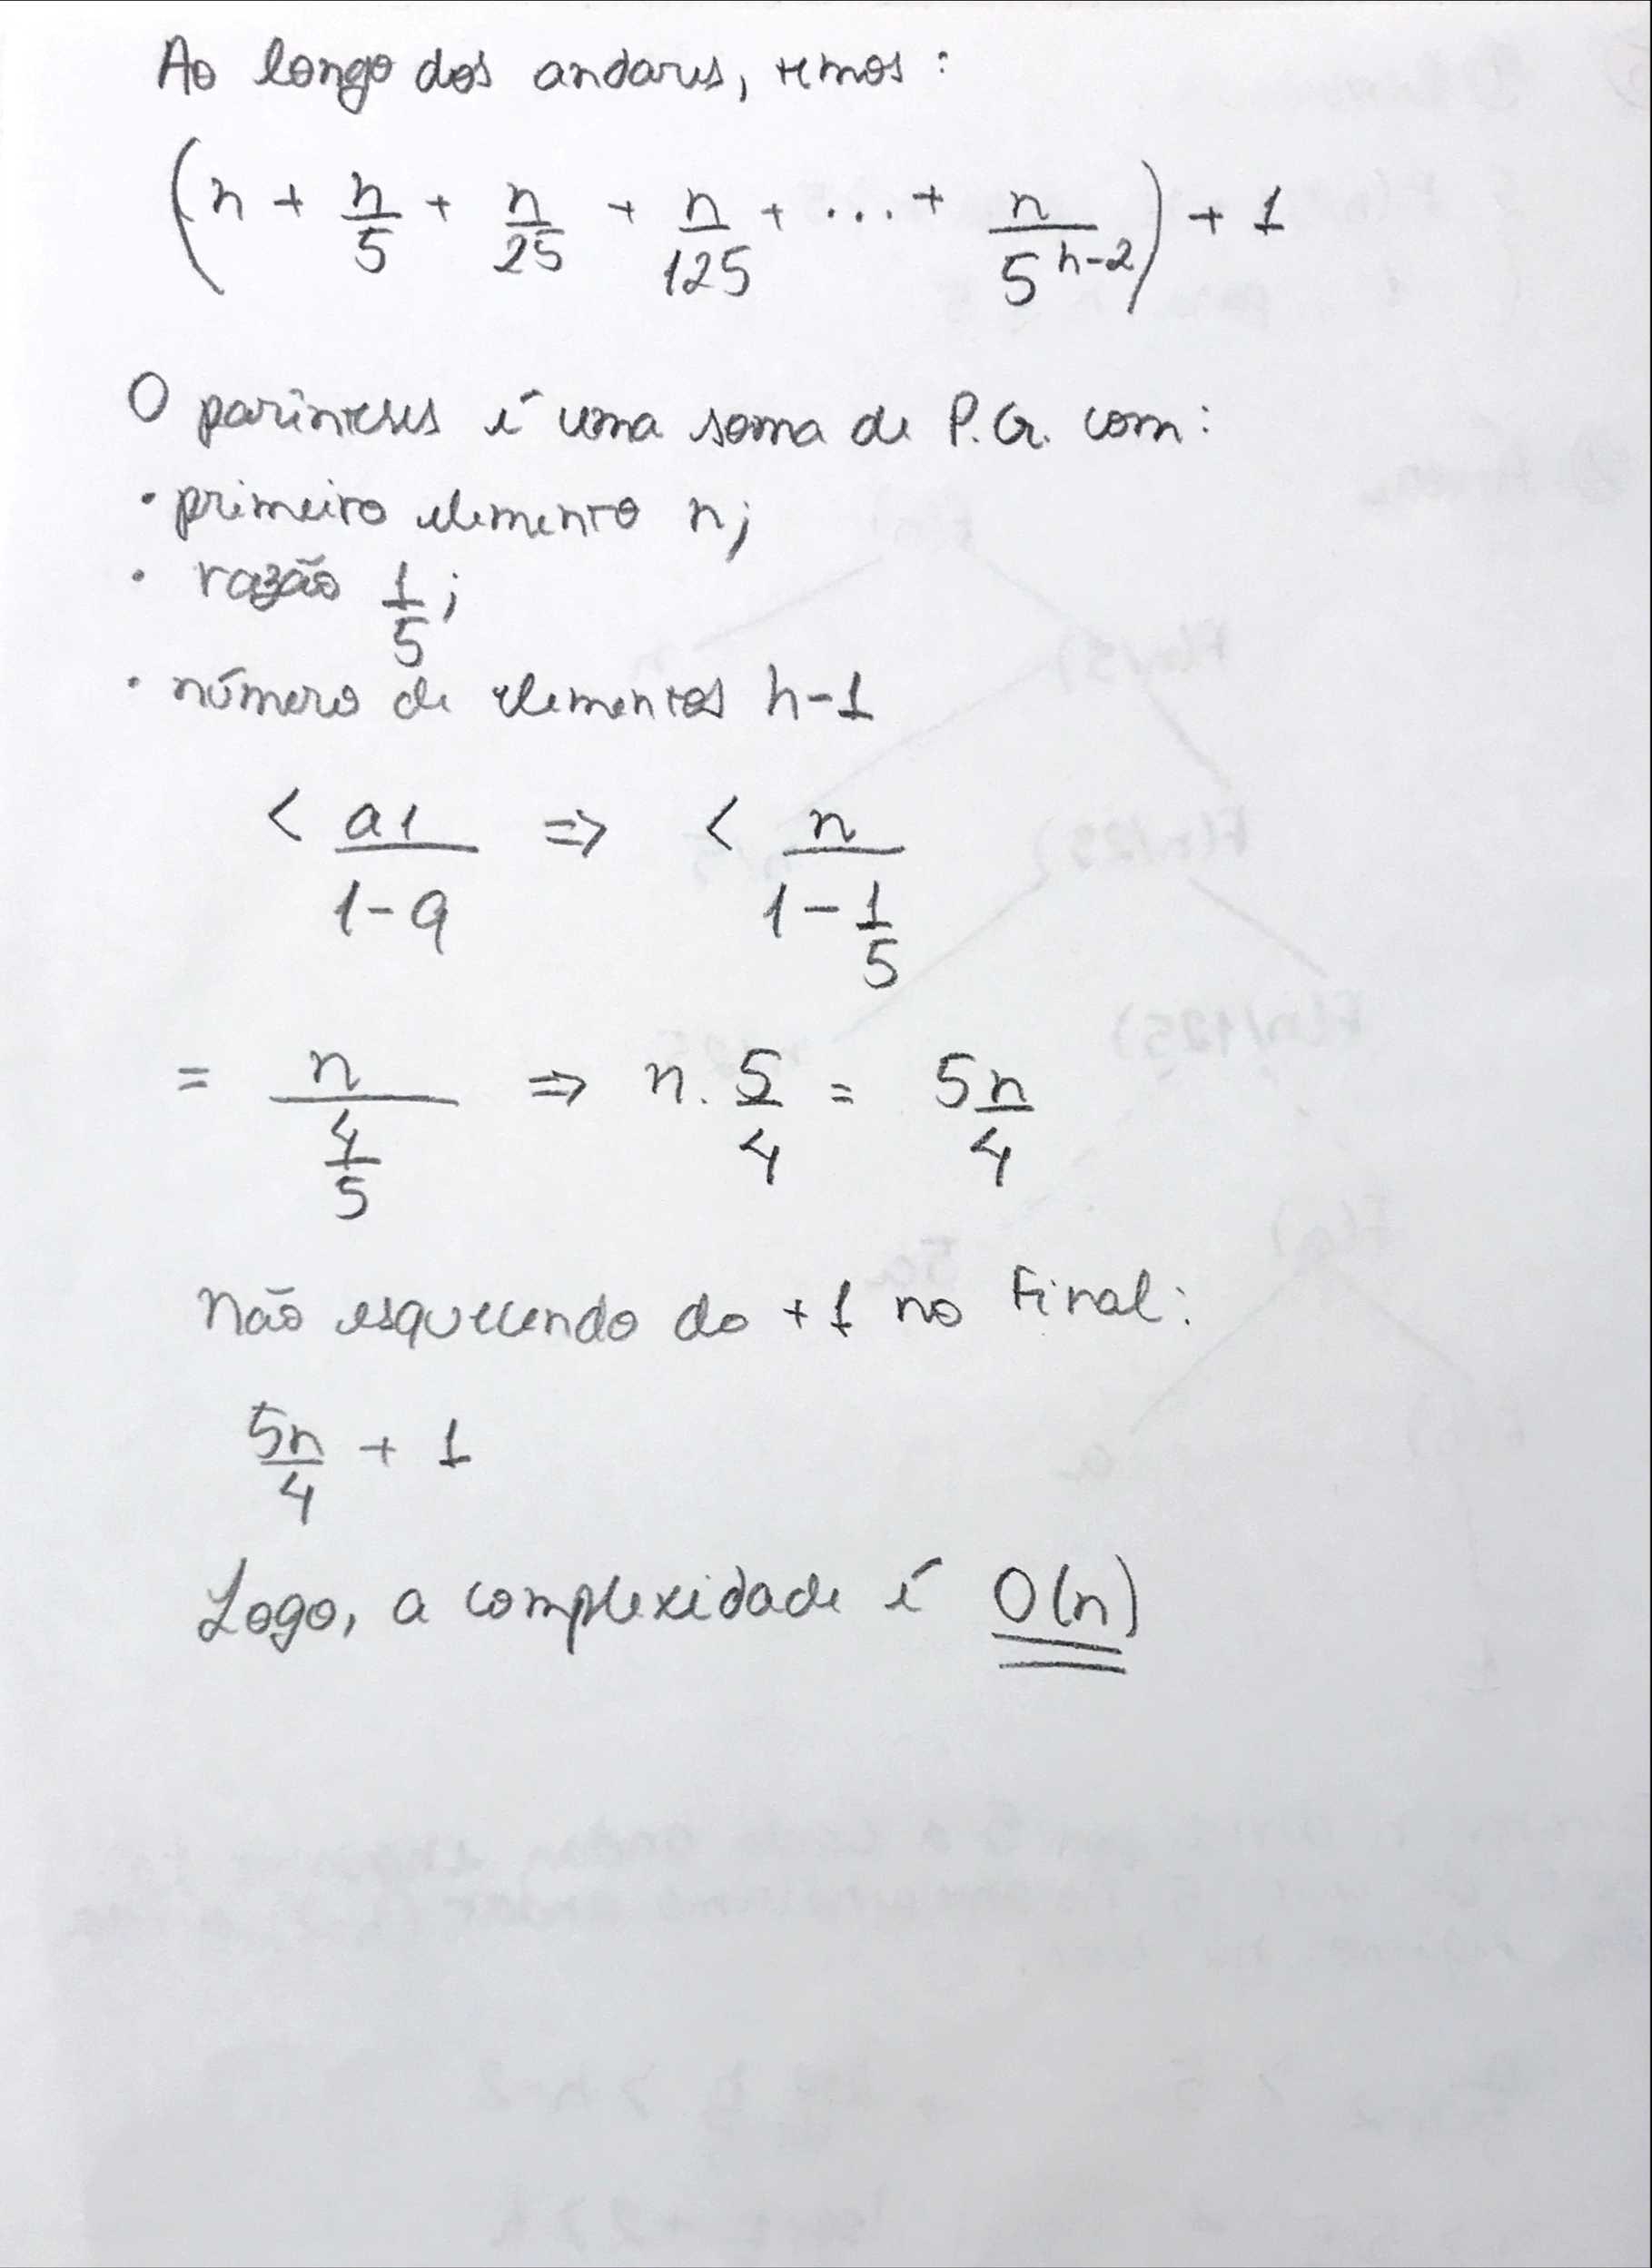 Ao longo dos andares, temos:
(n + n/5 + n/25 + n/125 + ... + n/5^(h-2)) + 1
O parênteses é uma soma de P.G. com:
• primeiro elemento n;
• razão 1/5;
• número de elementos h-1
< a1/(1-q) => < n/(1 - 1/5)
= n/(4/5) => n . 5/4 = 5n/4
Não esquecendo do +1 no final:
5n/4 + 1
Logo, a complexidade é O(n)